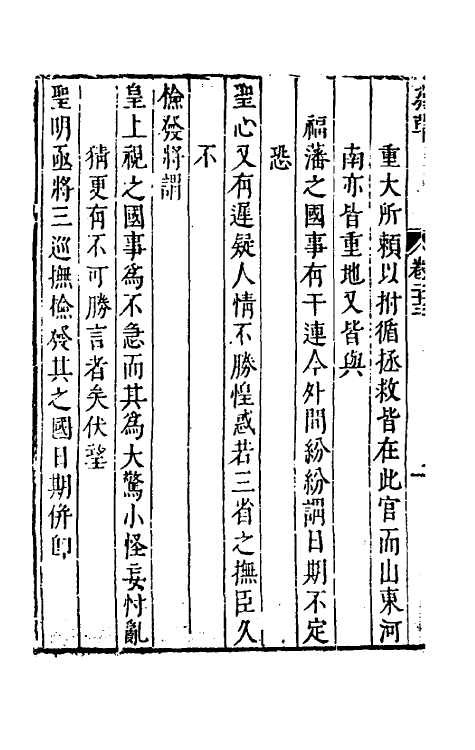 重大所頼以拊循拯救皆在此官而山東河
南亦皆重地又皆與
福藩之國事有干連今外間紛紛謂日期不定
恐
聖心又有遲疑人情不勝惶惑若三省之撫臣久
不
檢發將謂
皇上視之國事為不急而其為大驚小怪妄忖亂
猜更有不可勝言者矣伏望
聖明亟將三巡撫檢發其之國日期併卽